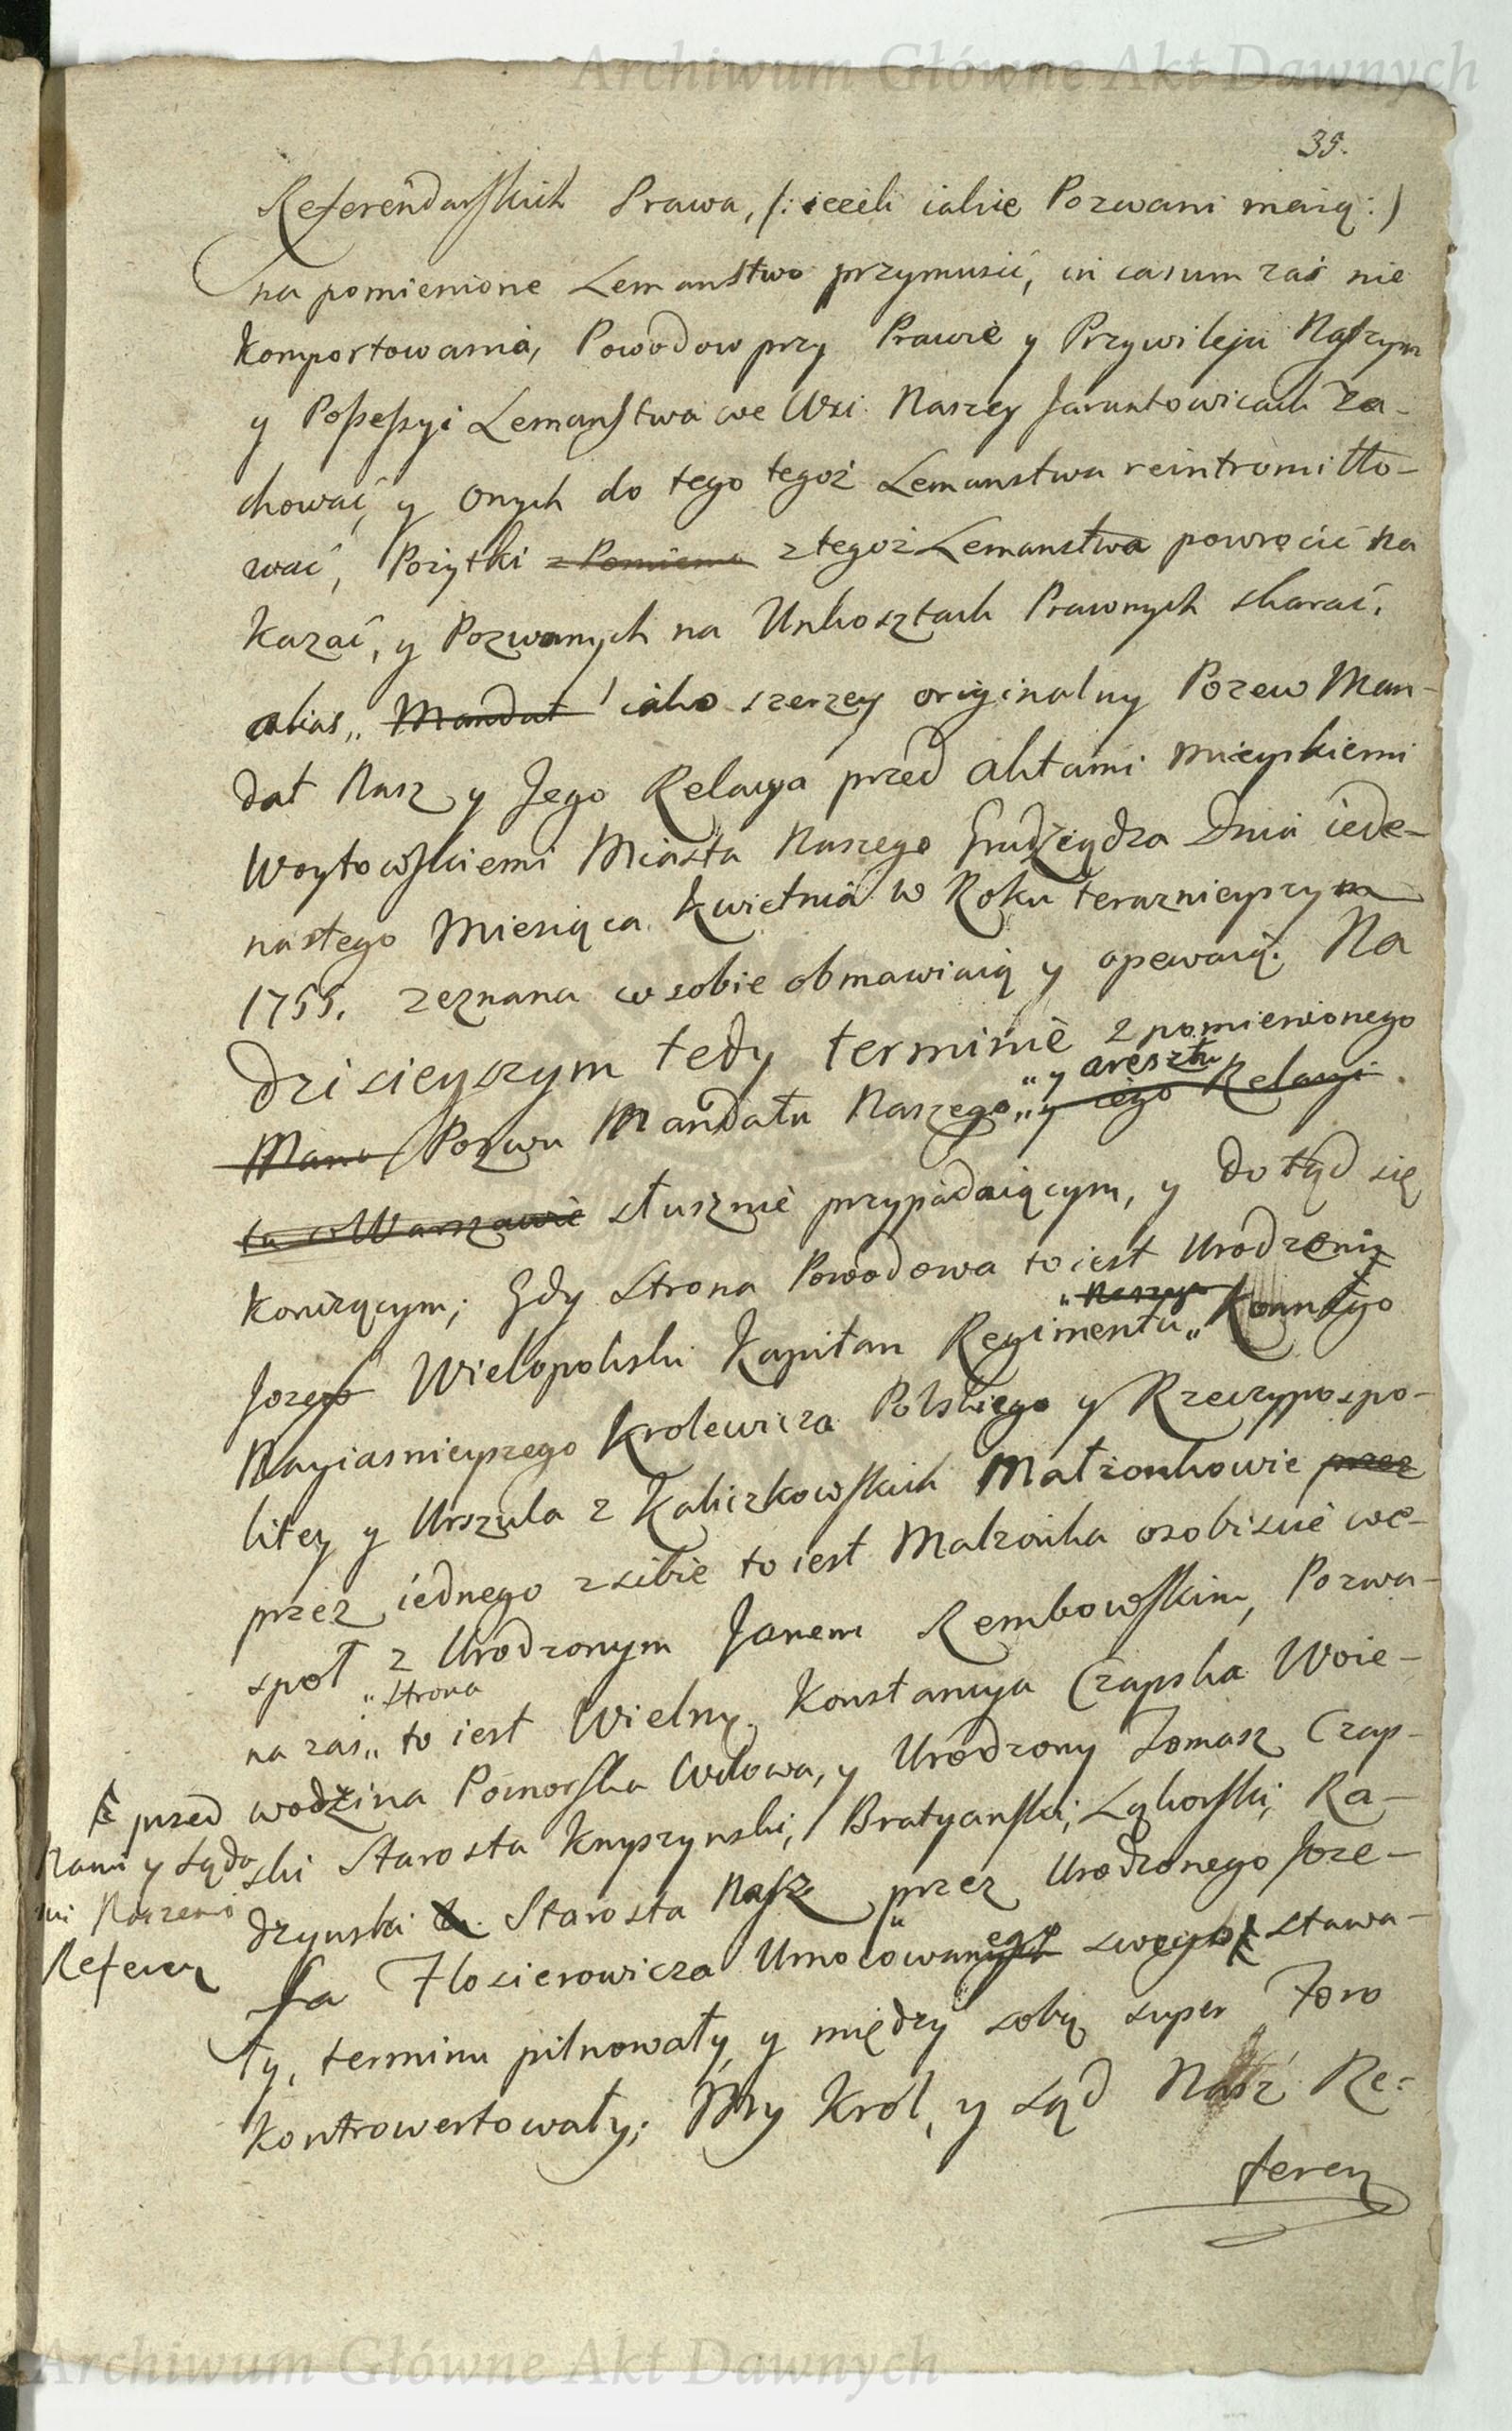 Archiwum Główne Akt Dawnych
35.
Referendarskich Prawa, /: ieżeli iakie Pozwani maią :/
na pomienione Lemanstwo przymusić, in casum zaś nie
komportowania, Powodow przy Prawie y Przywileju Naszym
y Possessyi Lemanstwa we Wsi Naszey Jaruntowicach za-
chować, y onych do tego tegoż Lemanstwa reintromitto-
wać, Pożytki z Pomienio z tegoż Lemanstwa powrocić na
kazać, y Pozwanych na Unkosztach Prawnych skarać,
alias „ Mandat iako szerzey originalny Pozew Man-
dat Nasz y Jego Relacya przed Aktami mieyskiemi
Woytowskiemi Miasta Naszego Grudziądza Dnia iede-
nastego Miesiąca Kwietnia w Roku teraznieyszym
1755. zeznana w sobie obmawiaią y opewaią. Na
dzisieyszym tedy terminie z pomienionego
„ y aresztu
Mana Pozwu Mandatu Naszego „ y iego Relacyi
tu w Warszawie słusznie przypadaiącym, y dotąd się
kończącym; Gdy Strona Powodowa to iest Urodzeni
„ Naszego
Jozef Wielopolski Kapitan Regimentu „ Konnego
Nayiasnieyszego Krolewicza Polskiego y Rzeczypospo-
litey y Urszula z Kaliczkowskich Małżonkowie przez
przez iednego z siebie to iest Małżonka osobiscie we-
społ z Urodzonym Janem Rembowskim, Pozwa-
„ strona
na zaś „ to iest Wielny Konstancya Czapska Woie-
wodzina Pomorska Wdowa, y Urodzony Tomasz Czap-
ski Starosta Knyszynski, Bratyanski, Ląkorski, Ra-
dzynski Starosta Nasz przez Urodzonego Joze-
fa Flosierowicza Umocowanego swego stawa-
przed
Nami y Sąda
mi Naszemi
Referen
ły, terminu pilnowały, y między sobą super Foro
kontrowertowały; My Krol, y Sąd Nasz Re-
feren
Archiwum Główne Akt Dawnych